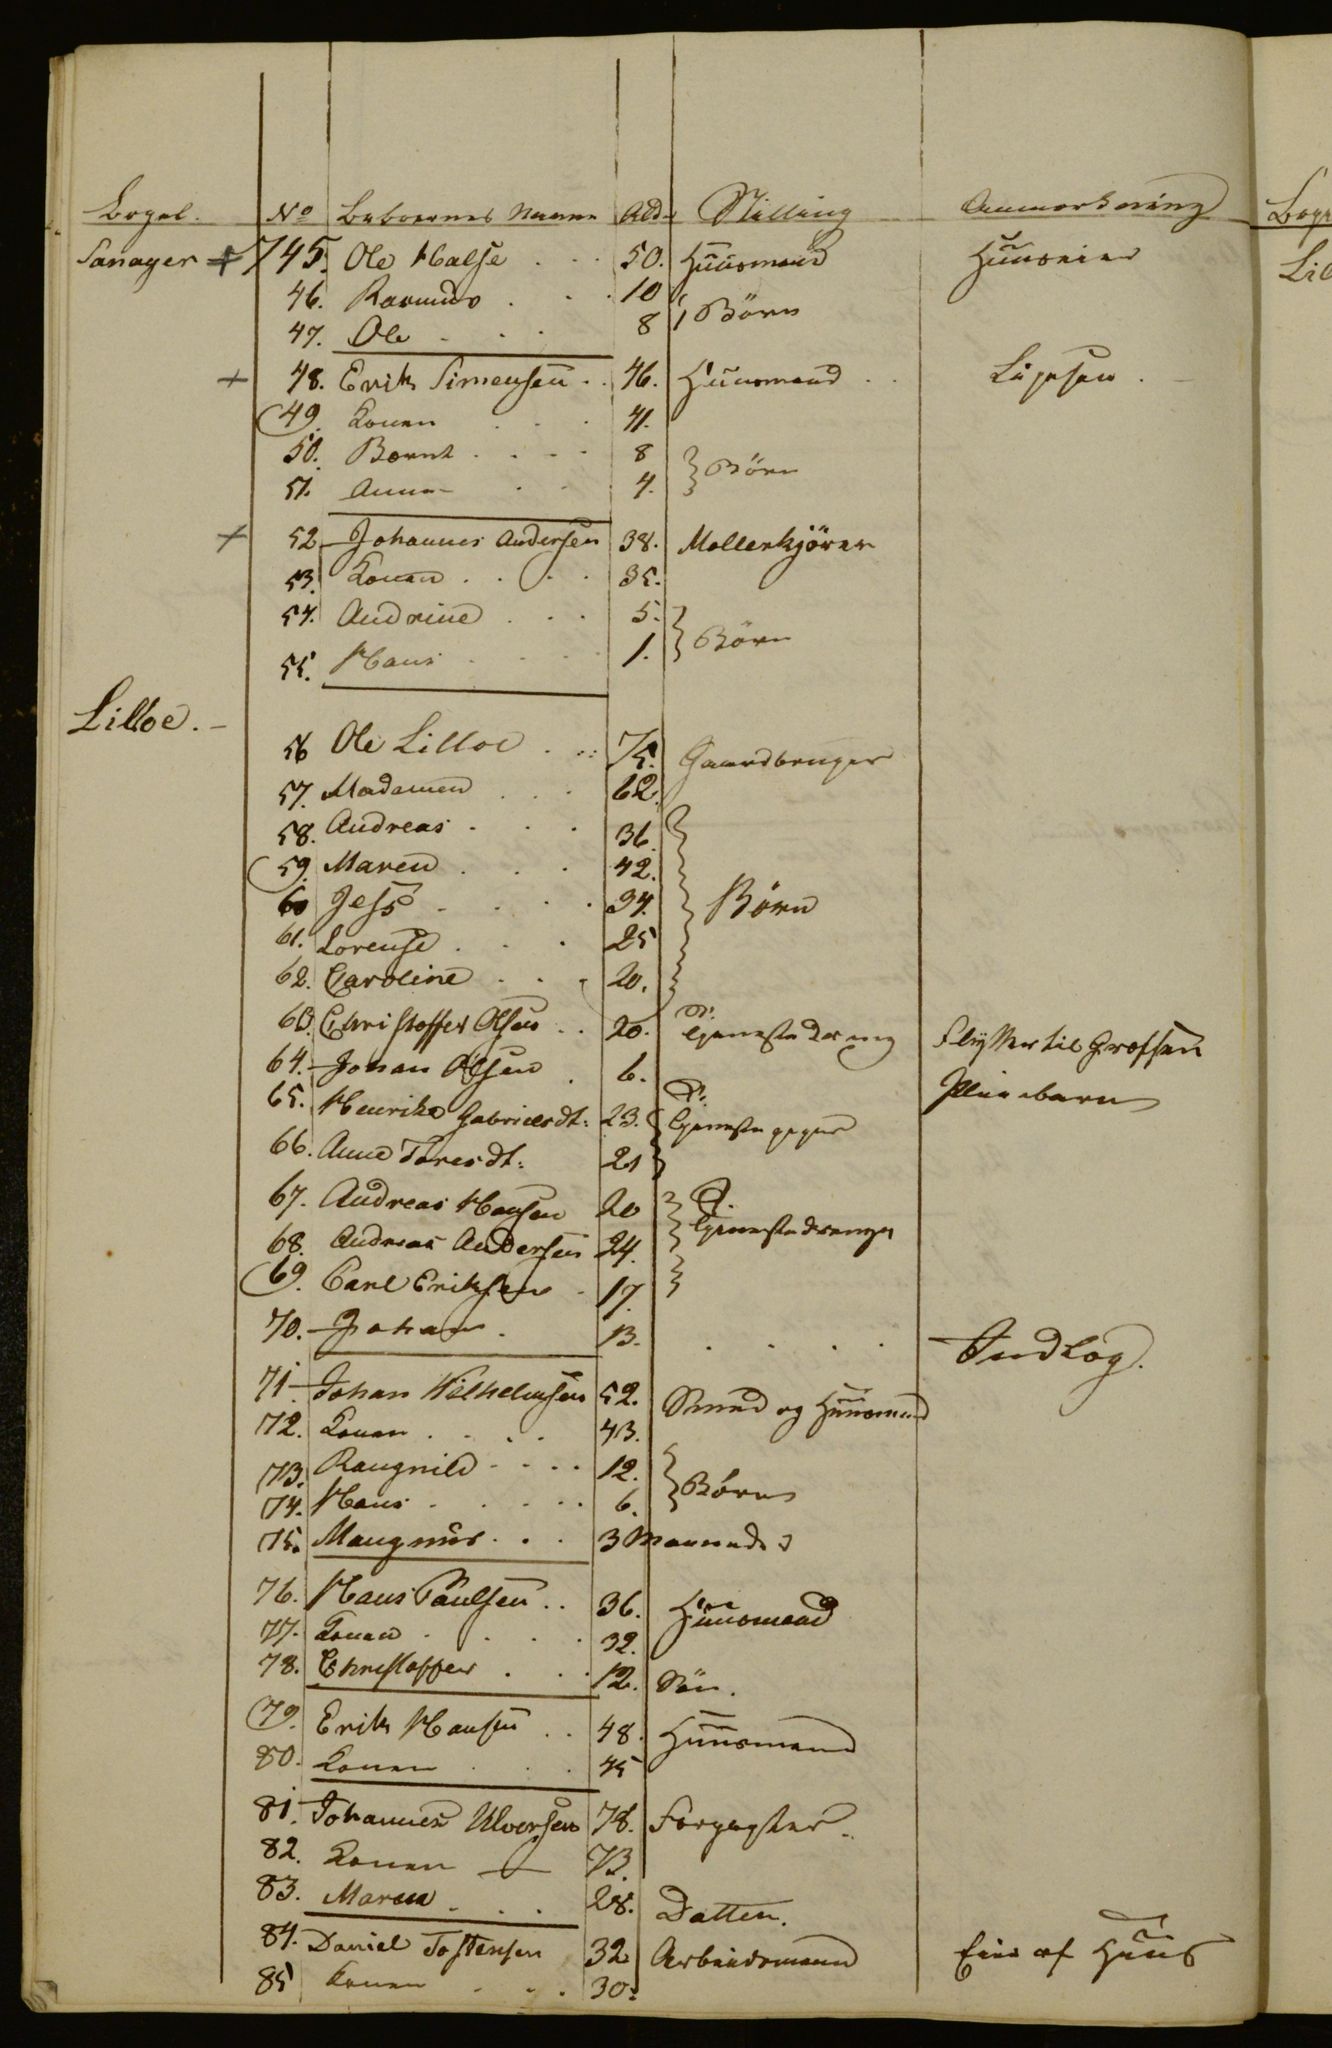 Bopæl. No Beboernes Navne Ald. Stilling Anmærkning
Sanager + 745. Ole Halse 50. Huusmand Huuseier
46. Rasmus 10
47. Ole 8 } Börn
+ 48. Erik Simensen 46. Huusmand
49. Konen 41.
50. Bernt 8
51. Anne 4. } Börn
+ 52. Johannes Andersen 38. Mollerkjörer
53. Konen 35.
54. Andrine 5.
55. Hans 1. } Börn
Lilloe.
56 Ole Lilloe 75. Gaardbruger
57. Madamen 62.
58. Andreas 36.
59. Maren 42.
60 Jess 34. } Börn
61. Lorense 25
62. Caroline 20.
63. Christoffer Olsen 20. Tjenestedreng Flytter til Grefsen
64. Johan Olsen 6. Pleiebarn
65. Henrikke Gabrielsdt: 23. Tjenestepiger
66. Anne Toresdt: 21
67. Andreas Hansen 20
68. Andreas Andersen 24. } Tjenestedrenge
69. Carl Eriksen 17.
70. Johan 13. Indlog.
71. Johan Wilhelmsen 52. Smed og Huusmand
72. Konen 43.
73. Rangnild 12.
74. Hans 6. } Börn
75. Mangnus 3 Maaneder
76. Hans Paulsen 36. Huusmand
77. Konen 32.
78. Christoffer 12. Sön.
79. Erik Hansen 48. Huusmand
80. Konen 45
81. Johannes Ulversen 78. Forpagter
82. Konen 73.
83. Maren 28. Datter.
84. Daniel Tostensen 32 Arbeidsmand Eier af Huus
85 Konen 30.